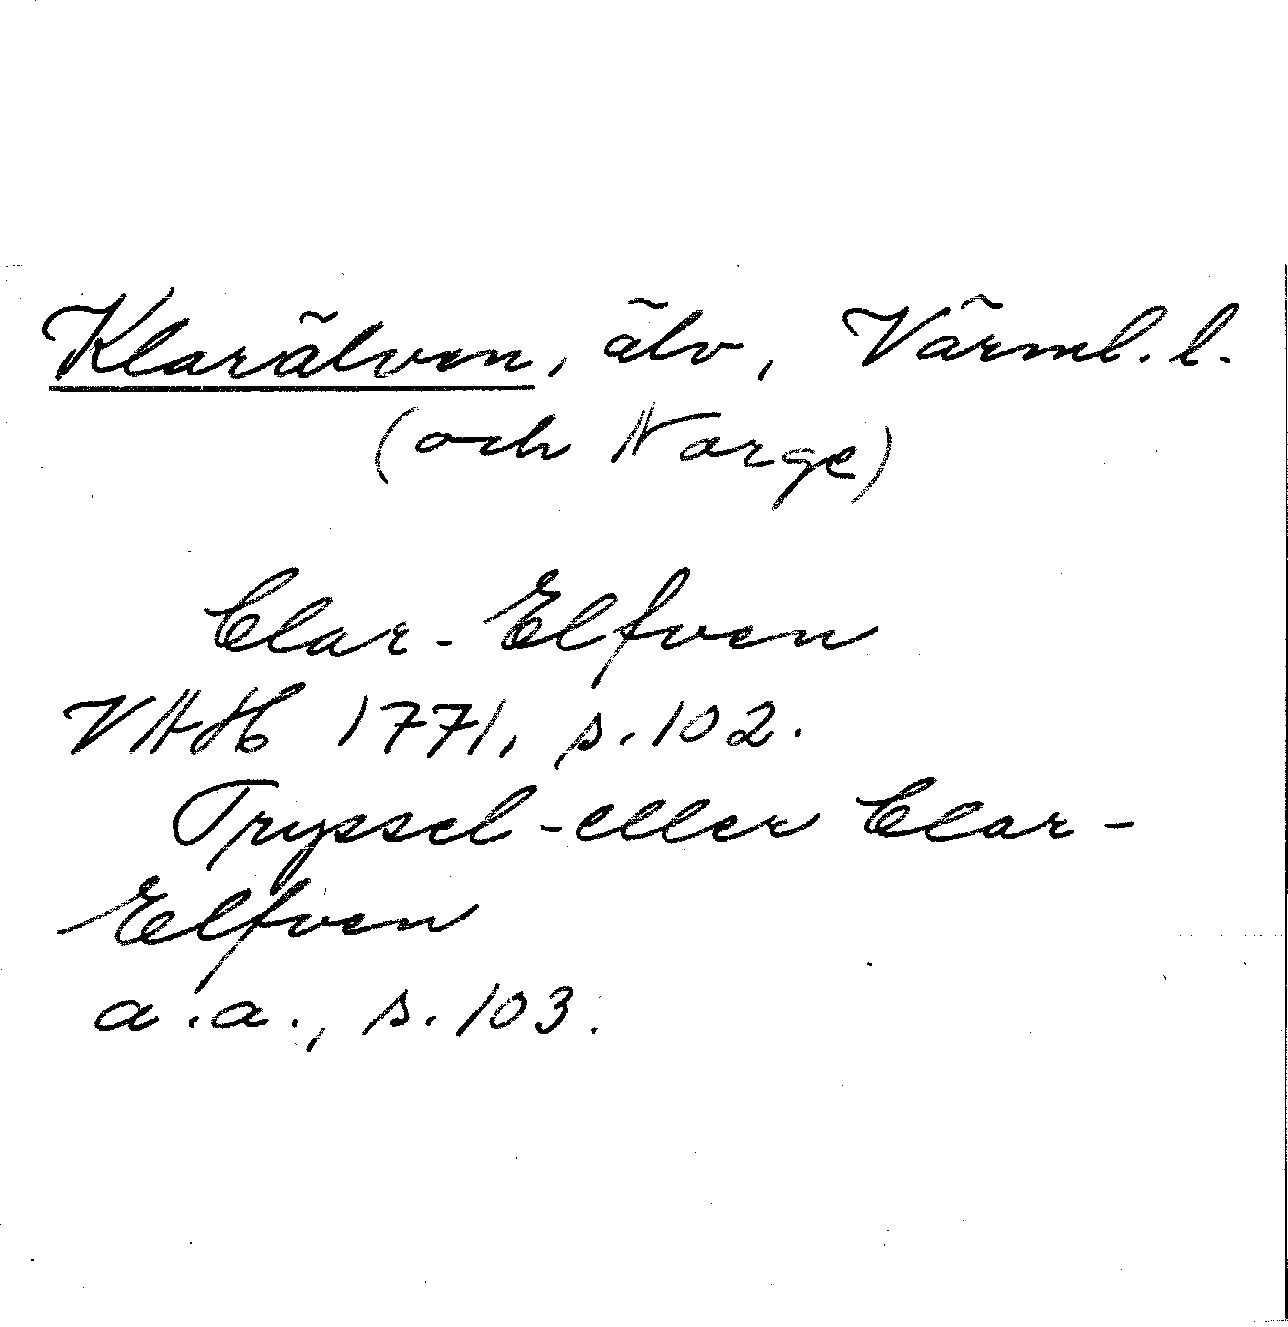 Klarälven, älv, Värml. l.
(och Norge)
Clar-Elfven
VAH 1771, s. 102.
Tryssel-eller Clar-
Elfven
a.a., s. 103.